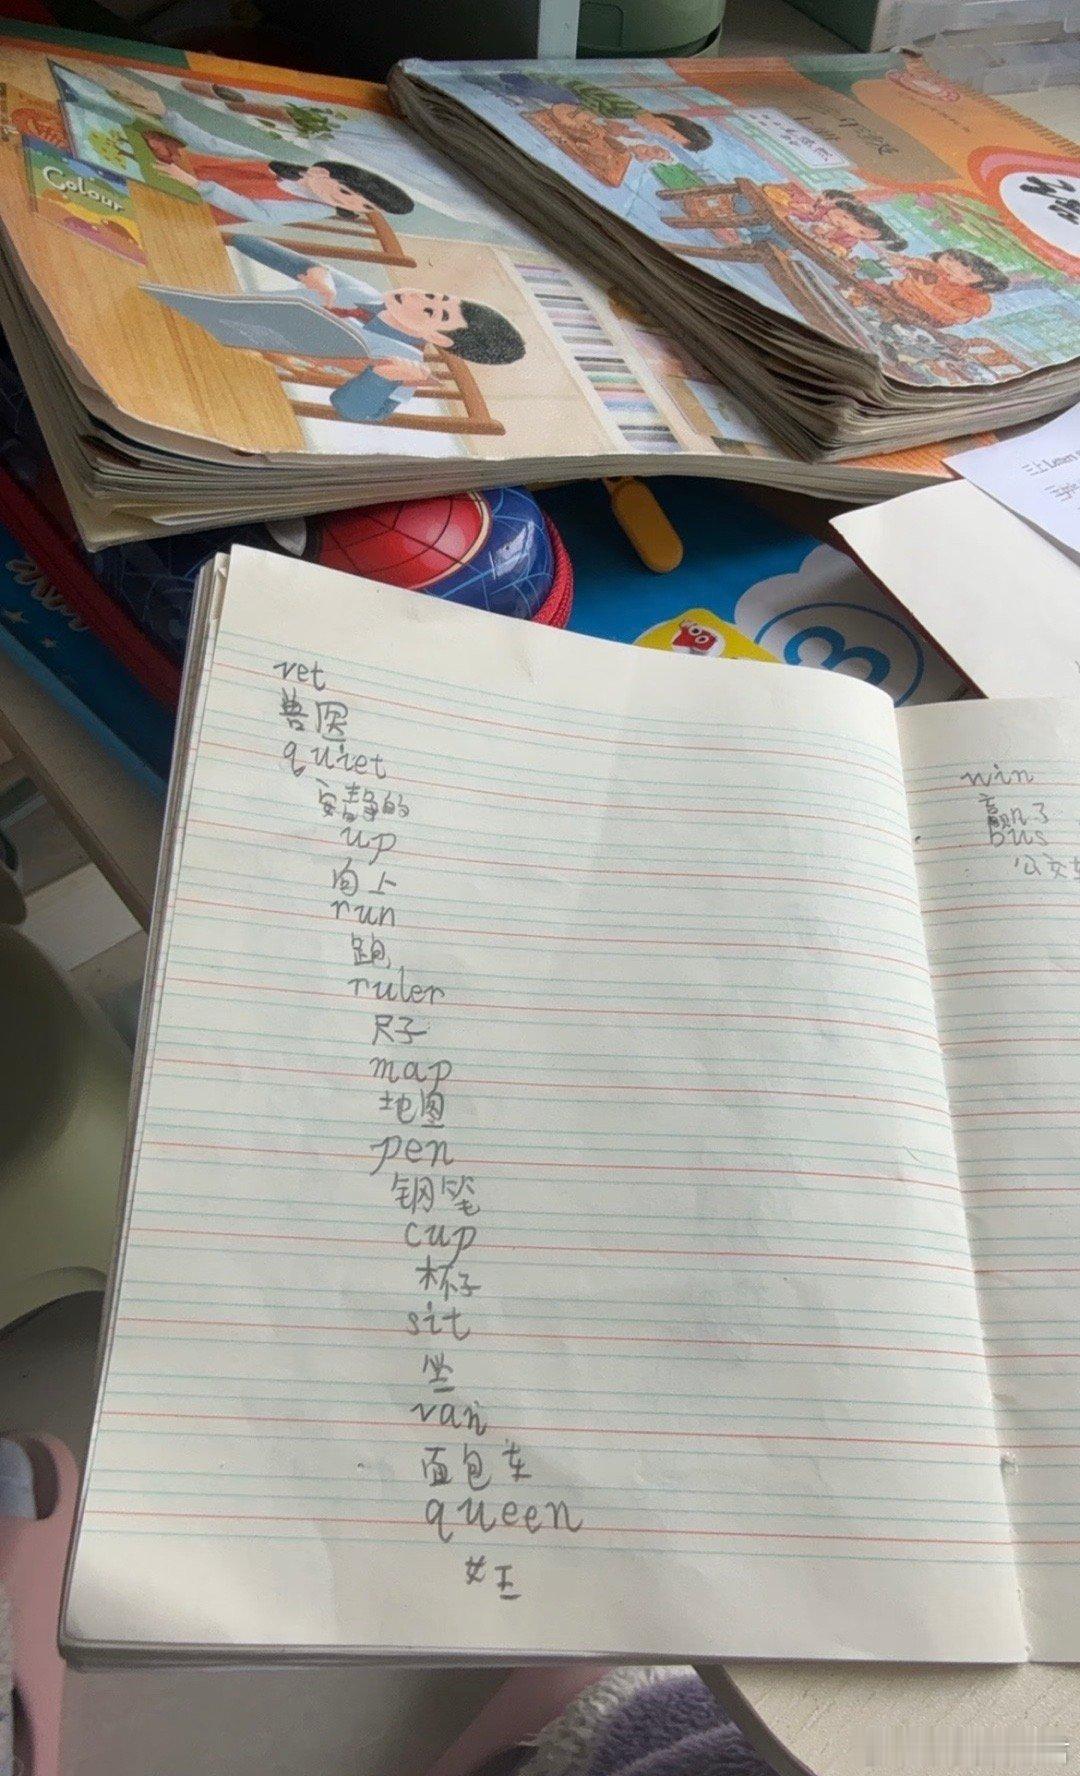 Colour
三上Letter
vet
兽医
quiet
安静的
up
向上
run
跑
ruler
尺子
map
地图
pen
钢笔
cup
杯子
sit
坐
van
面包车
queen
女王
win
赢了
bus
公交车